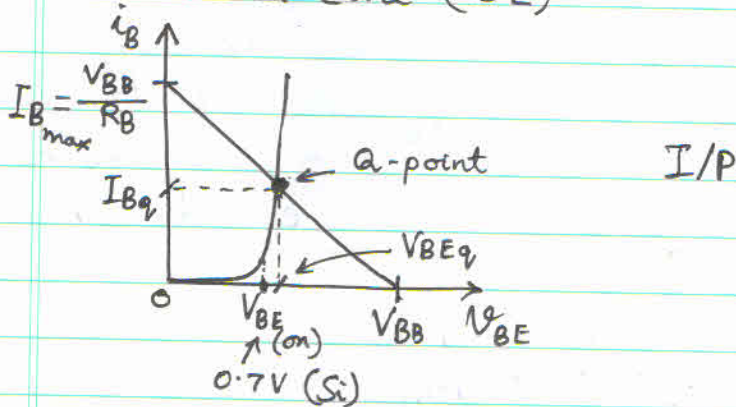 (CE)
i_B
I_B max = V_BB / R_B
Q-point
I/P
I_Bq
V_BEq
0
V_BE (on)
V_BB
v_BE
0.7V (Si)